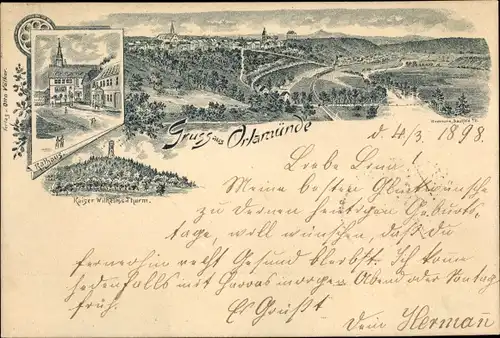 Verlag v. Otto Völker
Rathaus
Kaiser Wilhelms-Thurm.
Gruss aus Orlamünde
d 4/3. 1898.
Liebe Lina!
Meine besten Glückwünsche
zu Deinen heutigen Geburts-
tage, will wünschen, daß Du
fernerhin recht Gesund bleibst. Ich kome
jedenfalls mit morgen Abend oder Sontag
früh.
Es Grüßt
Dein Hermañ